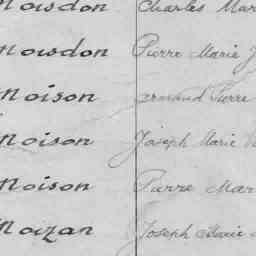 Moisdon Charles Mar
Moisdon Pierre Marie J
Moison Armand Pierre
Moison Joseph Marie
Moison Pierre Mar
Moizan Joseph Marie